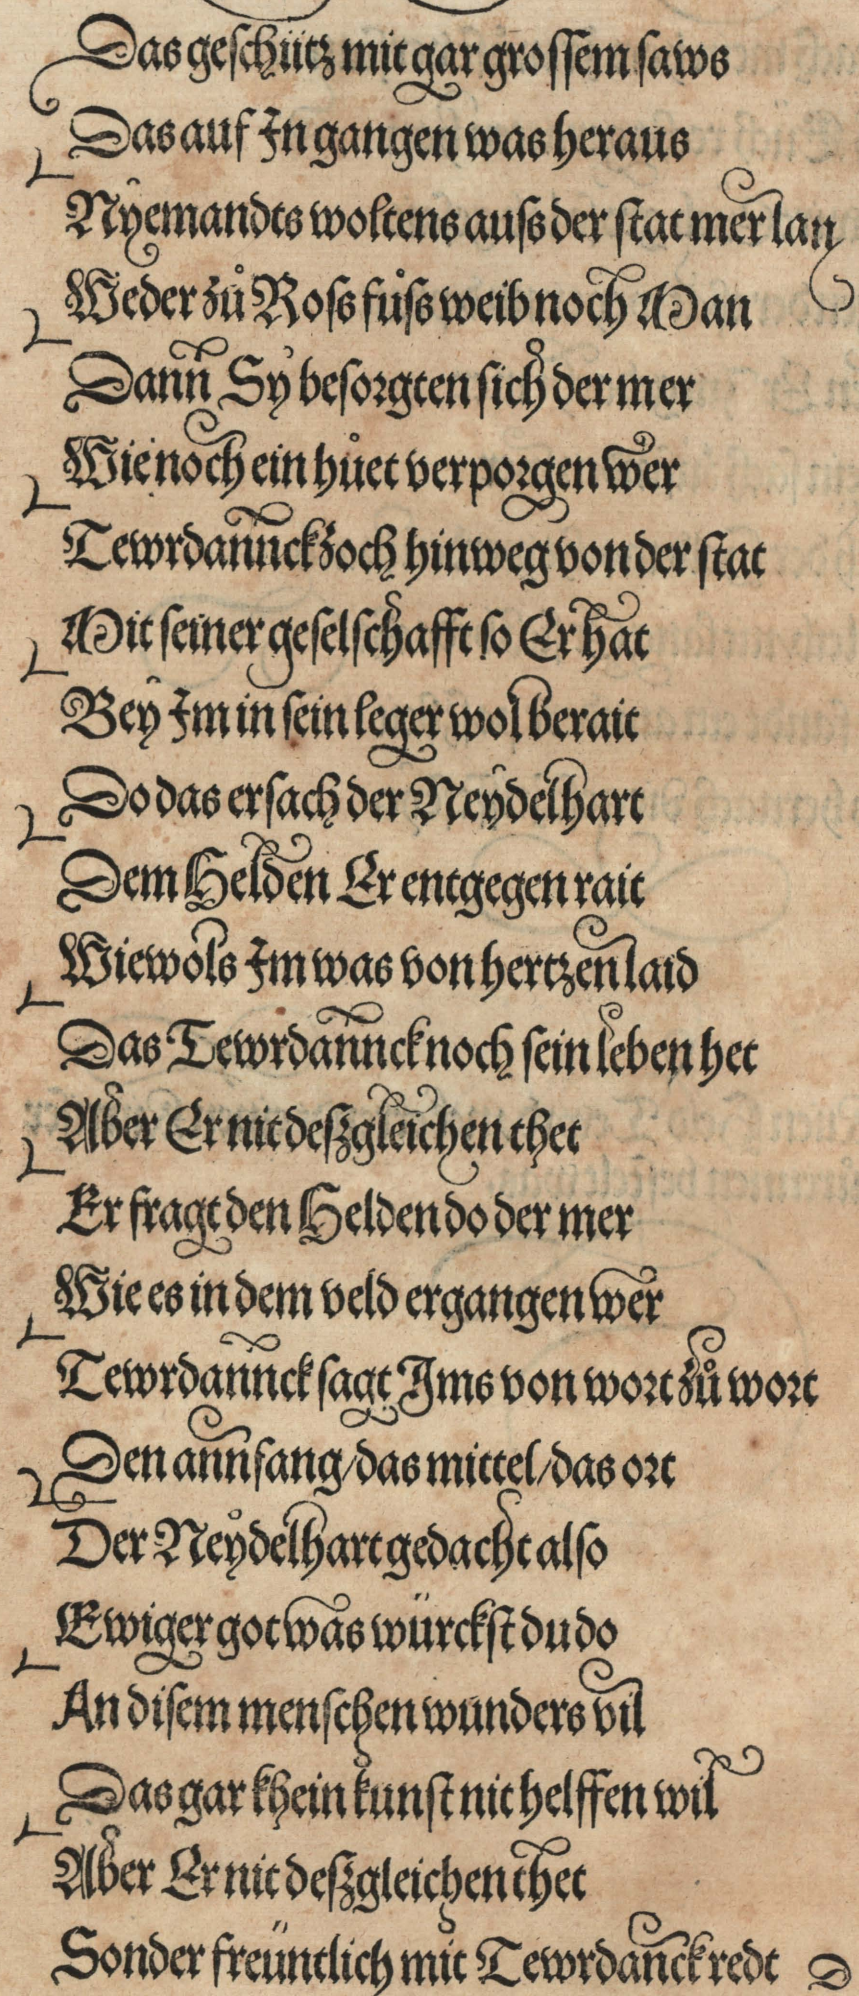 Das geschütz mit gar grossem saws
Das auf In gangen was heraus
Nÿemandts woltens auss der stat mer lan
Weder zů Ross fůss weib noch Man
Dann Sÿ besorgten sich der mer
Wie noch ein hůet verporgen wer
Tewrdannck zoch hinweg von der stat
Mit seiner geselschafft so Er hat
Beÿ Im in sein leger wol berait
Do das ersach der Neÿdelhart
Dem Helden Er entgegen rait
Wiewols Im was von hertzen laid
Das Tewrdannck noch sein leben het
Aber Er nit deßgleichen thet
Er fragt den Helden do der mer
Wie es in dem veld ergangen wer
Tewrdannck sagt Ims von wort zů wort
Den annfang/das mittel/das ort
Der Neÿdelhart gedacht also
Ewiger got was würckst du do
An disem menschen wunders vil
Das gar khein kunst nit helffen wil
Aber Er nit deßgleichen thet
Sonder freüntlich mit Tewrdanck redt D